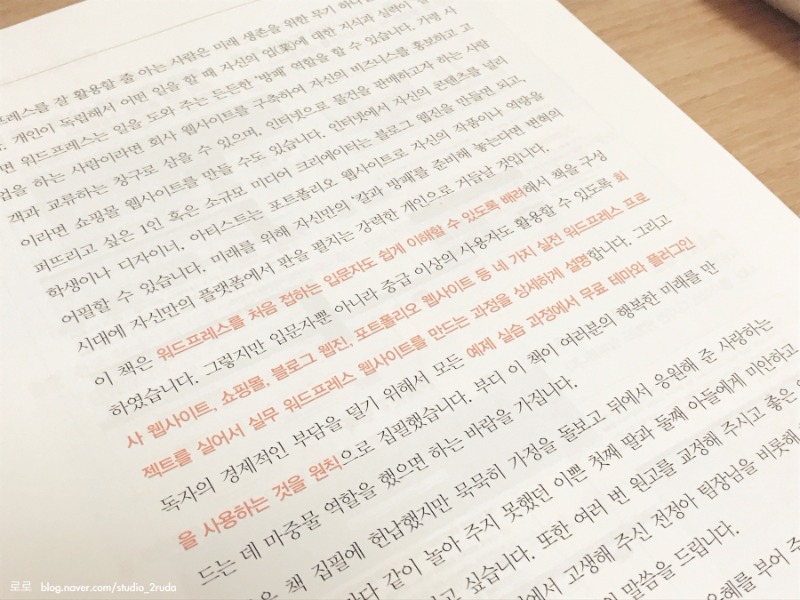 프레스를 잘 활용할 줄 아는 사람은 미래 생존을 위한 무기 하나
개인이 독립해서 어떤 일을 할 때 자신의 업(業)에 대한 지식과 실력이
면 워드프레스는 일을 도와 주는 든든한 '방패' 역할을 할 수 있습니다. 가령 사
업을 하는 사람이라면 회사 웹사이트를 구축하여 자신의 비즈니스를 홍보하고 고
객과 교류하는 창구로 삼을 수 있으며, 인터넷으로 물건을 판매하고자 하는 사람
이라면 쇼핑몰 웹사이트를 만들 수도 있습니다. 인터넷에서 자신의 콘텐츠를 널리
퍼뜨리고 싶은 1인 혹은 소규모 미디어 크리에이터는 블로그 웹진을 만들면 되고,
학생이나 디자이너, 아티스트는 포트폴리오 웹사이트로 자신의 작품이나 역량을
어필할 수 있습니다. 미래를 위해 자신만의 칼과 방패를 준비해 놓는다면 변혁의
시대에 자신만의 플랫폼에서 판을 펼치는 강력한 개인으로 거듭날 것입니다.
이 책은 워드프레스를 처음 접하는 입문자도 쉽게 이해할 수 있도록 배려해서 책을 구성
하였습니다. 그렇지만 입문자뿐 아니라 중급 이상의 사용자도 활용할 수 있도록 회
사 웹사이트, 쇼핑몰, 블로그 웹진, 포트폴리오 웹사이트 등 네 가지 실전 워드프레스 프로
젝트를 실어서 실무 워드프레스 웹사이트를 만드는 과정을 상세하게 설명합니다. 그리고
독자의 경제적인 부담을 덜기 위해서 모든 예제 실습 과정에서 무료 테마와 플러그인
을 사용하는 것을 원칙으로 집필했습니다. 부디 이 책이 여러분의 행복한 미래를 만
드는 데 마중물 역할을 했으면 하는 바람을 가집니다.
책 집필에 헌납했지만 묵묵히 가정을 돌보고 뒤에서 응원해 준 사랑하는
같이 놀아 주지 못했던 이쁜 첫째 딸과 둘째 아들에게 미안하고
싶습니다. 또한 여러 번 원고를 교정해 주시고 좋은
에서 고생해 주신 전정아 팀장님을 비롯해
말씀을 드립니다.
은혜를 부어 주
로로 blog.naver.com/studio_2ruda